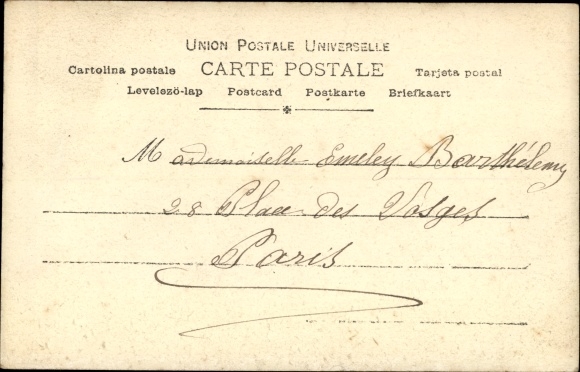 UNION POSTALE UNIVERSELLE
Cartolina postale CARTE POSTALE Tarjeta postal
Levelező-lap Postcard Postkarte Briefkaart
Mademoiselle Emeley Barthélemy
28 Place des Vosges
Paris